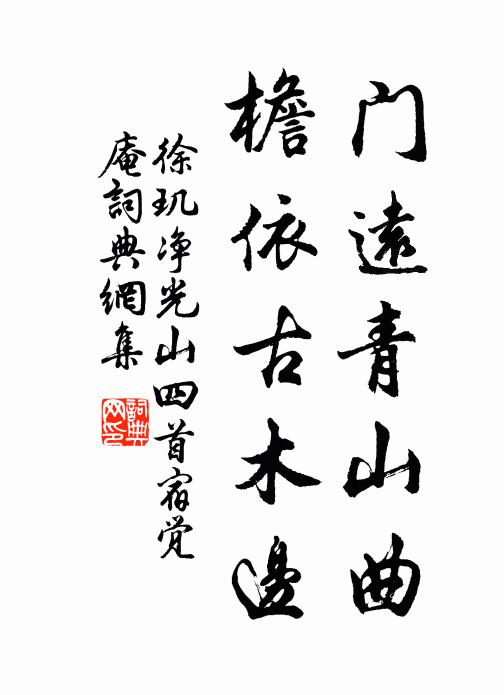 门遠青山曲
檐依古木邊
徐玑净光山四首宿觉
庵詞典網集
詞典
网印